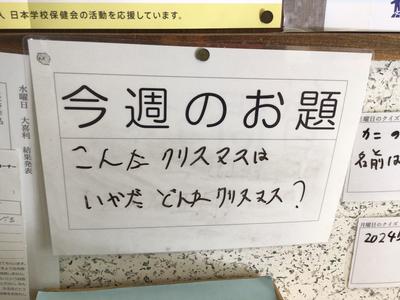 人 日本学校保健会の活動を応援しています。
今週のお題
こんな クリスマスは
いやだ どんなクリスマス?
水曜日 大喜利 結果発表
曜日のクイズ
カニの
名前は
月曜日のクイズ
2024